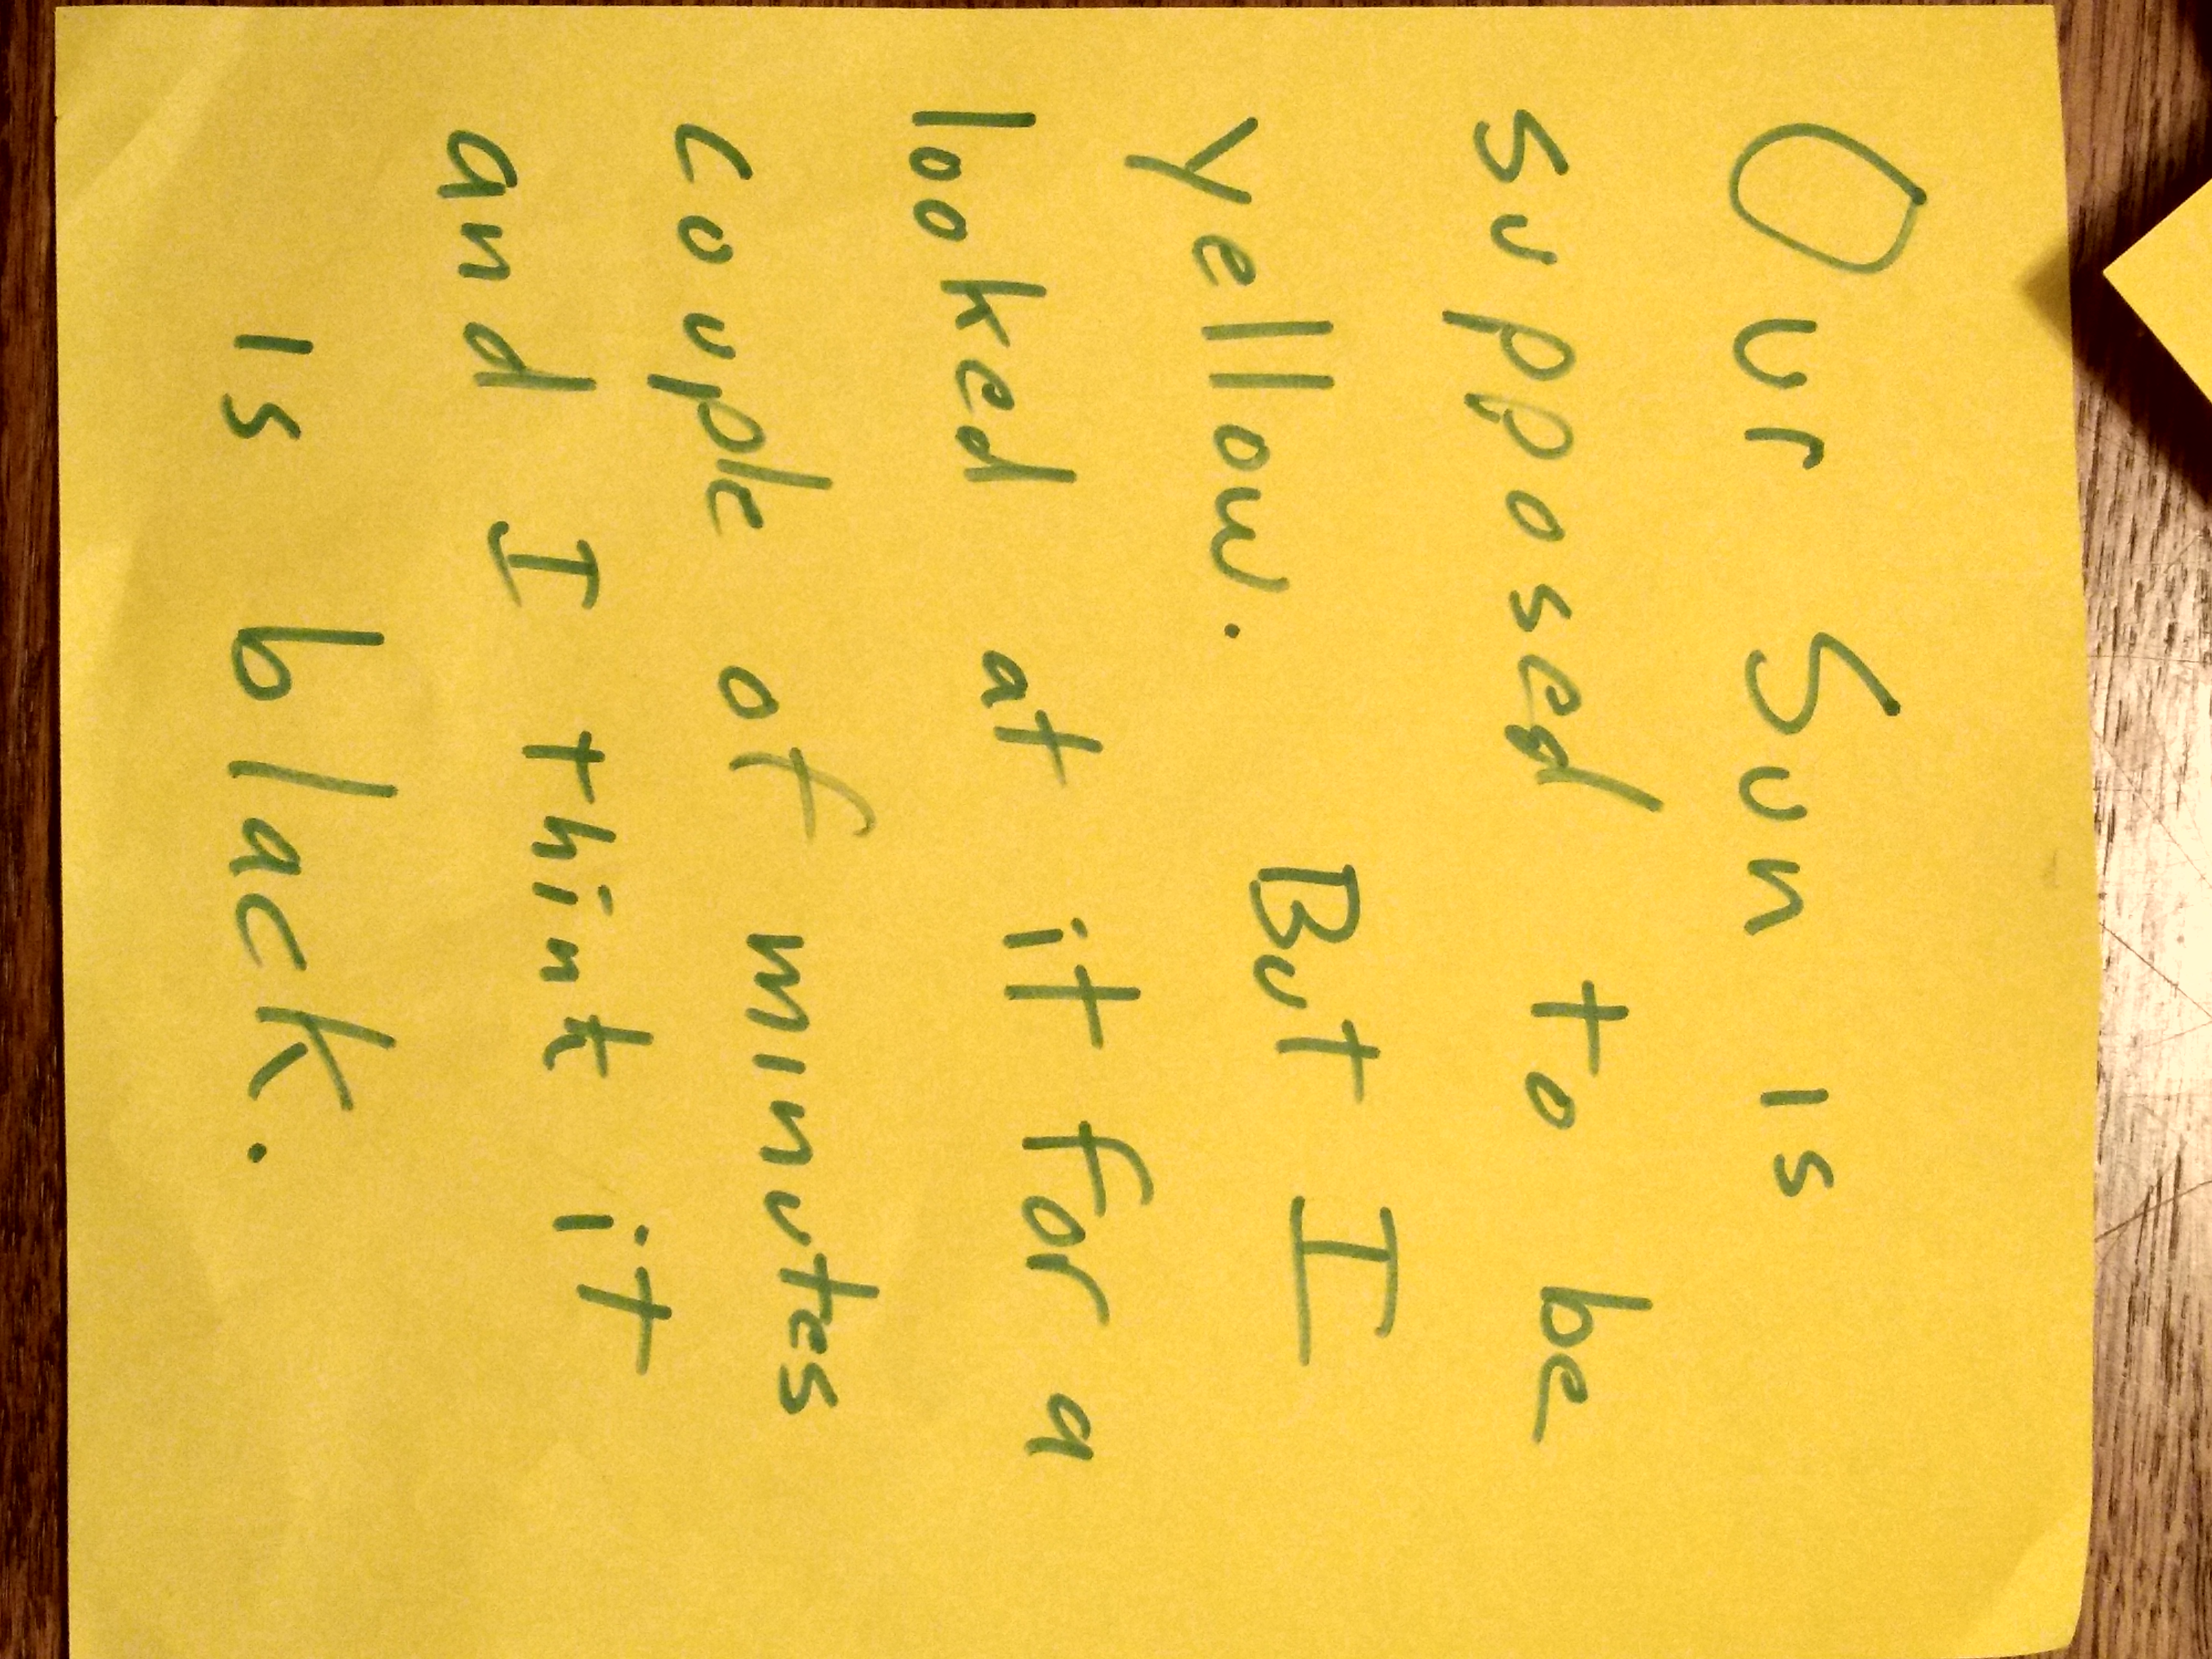 Our Sun is
supposed to be
yellow. But I
looked at it for a
couple of minutes
and I think it
is black.